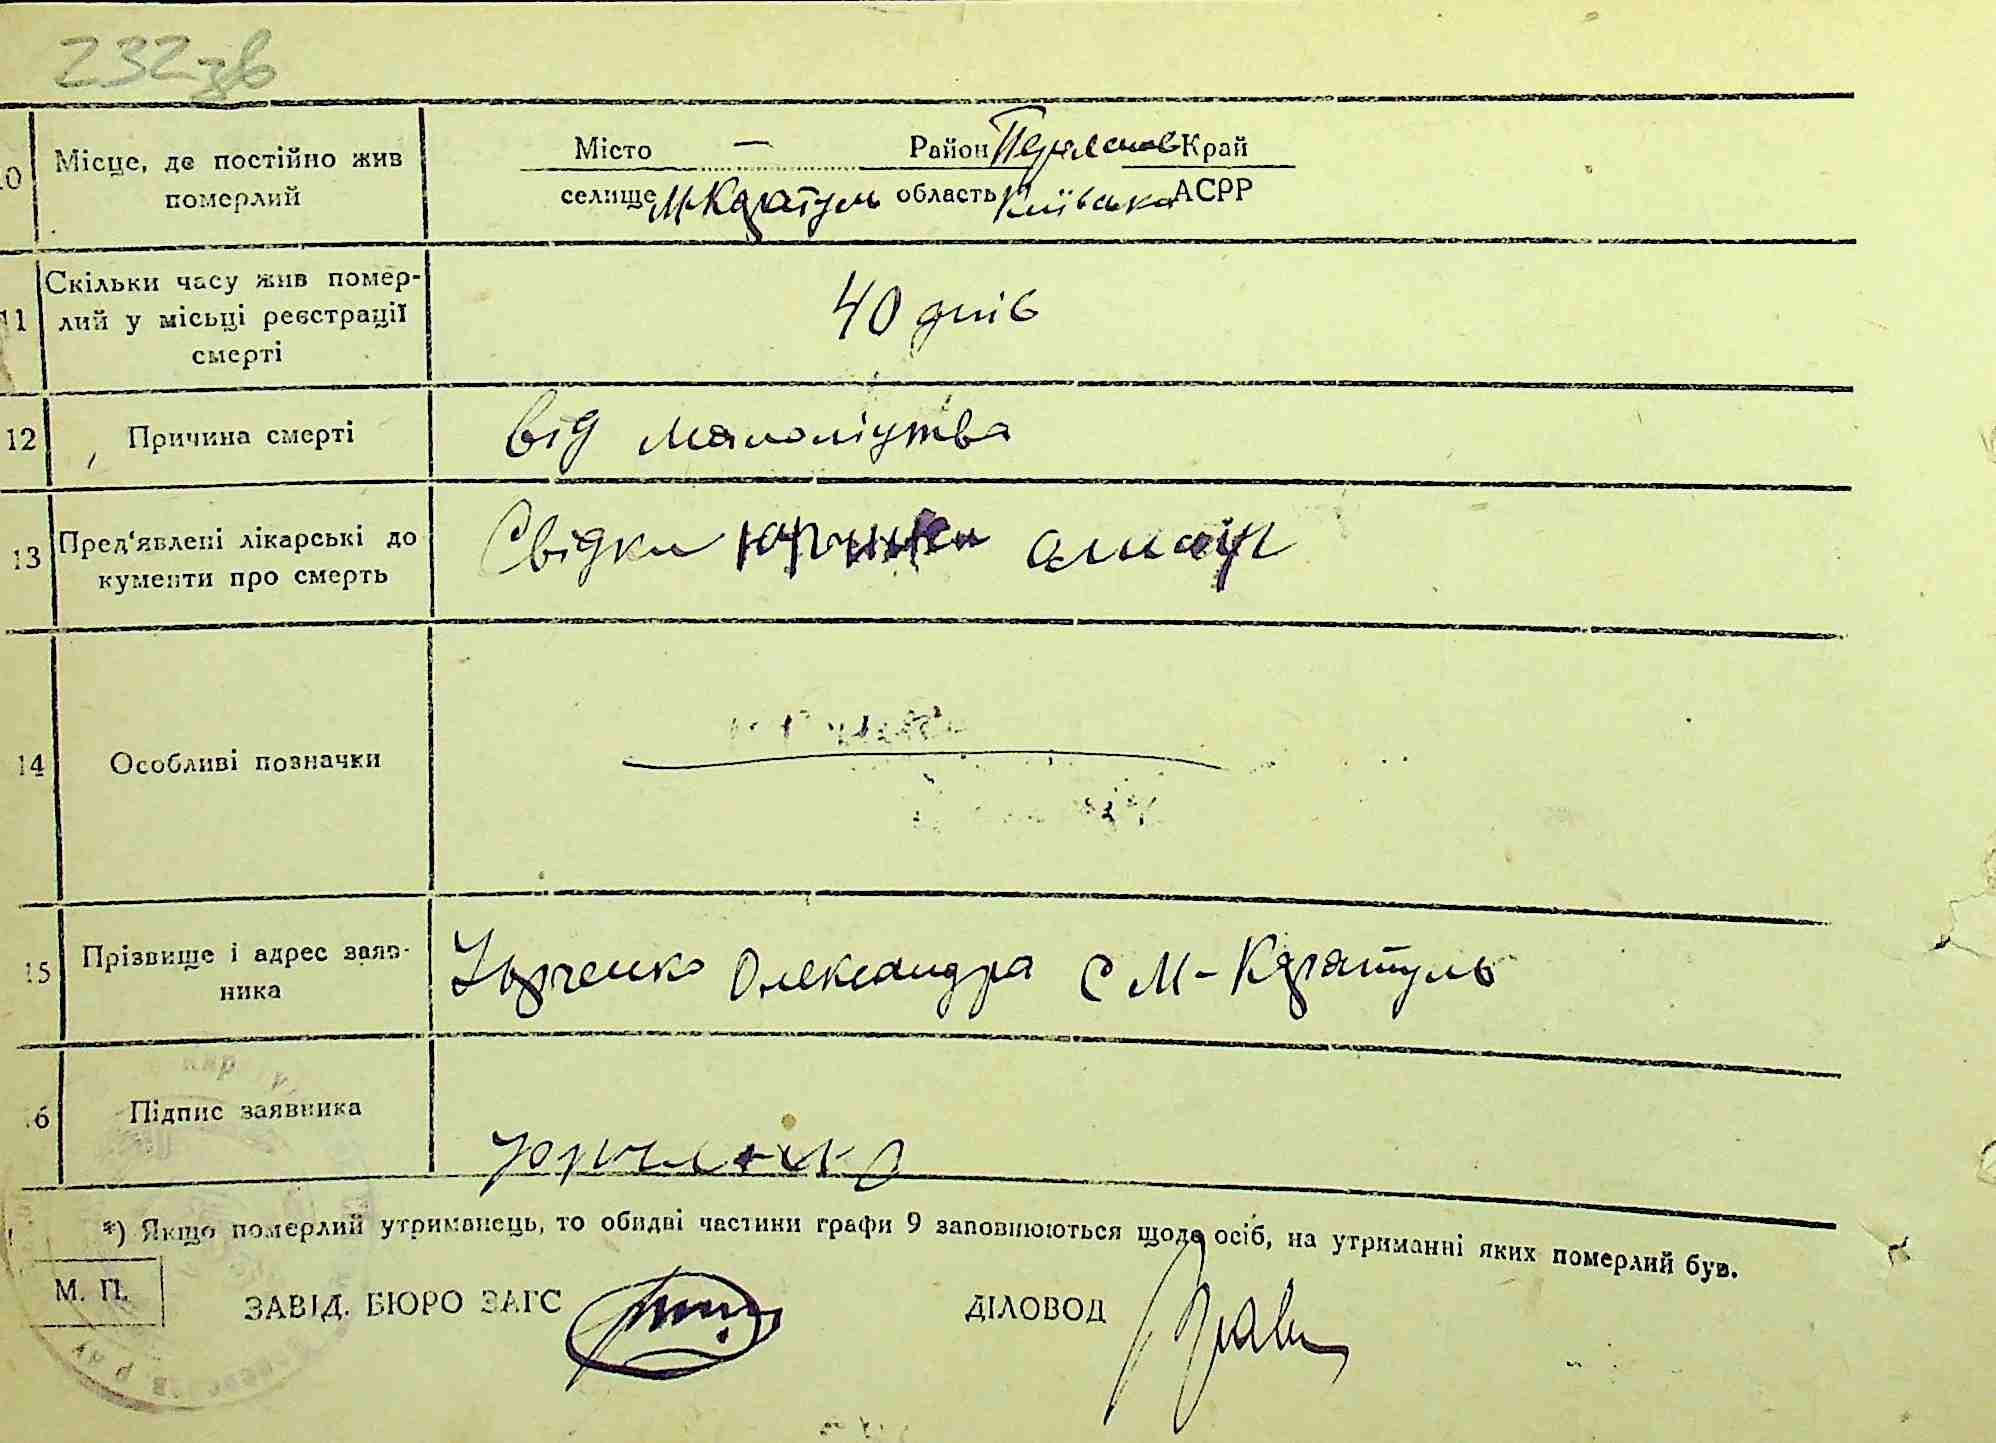 232 зв
10 Місце, де постійно жив померлий
Місто — Район Переяслов Край
селище М-Каратуль область Київська АСРР
11 Скільки часу жив помер-
лий у місьці реєстрації
смерті
40 днів
12 Причина смерті
від малоліцтва
13 Пред'явлені лікарські до
кументи про смерть
Свідки
14 Особливі позначки
15 Прізвище і адрес заяв-
ника
Юрченко Олександра с М-Каратуль
16 Підпис заявника
Юрченко
*) Якщо померлий утриманець, то обидві частини графи 9 заповнюються щодо осіб, на утриманні яких померлий був.
М. П.
ЗАВІД. БЮРО ЗАГС
ДІЛОВОД